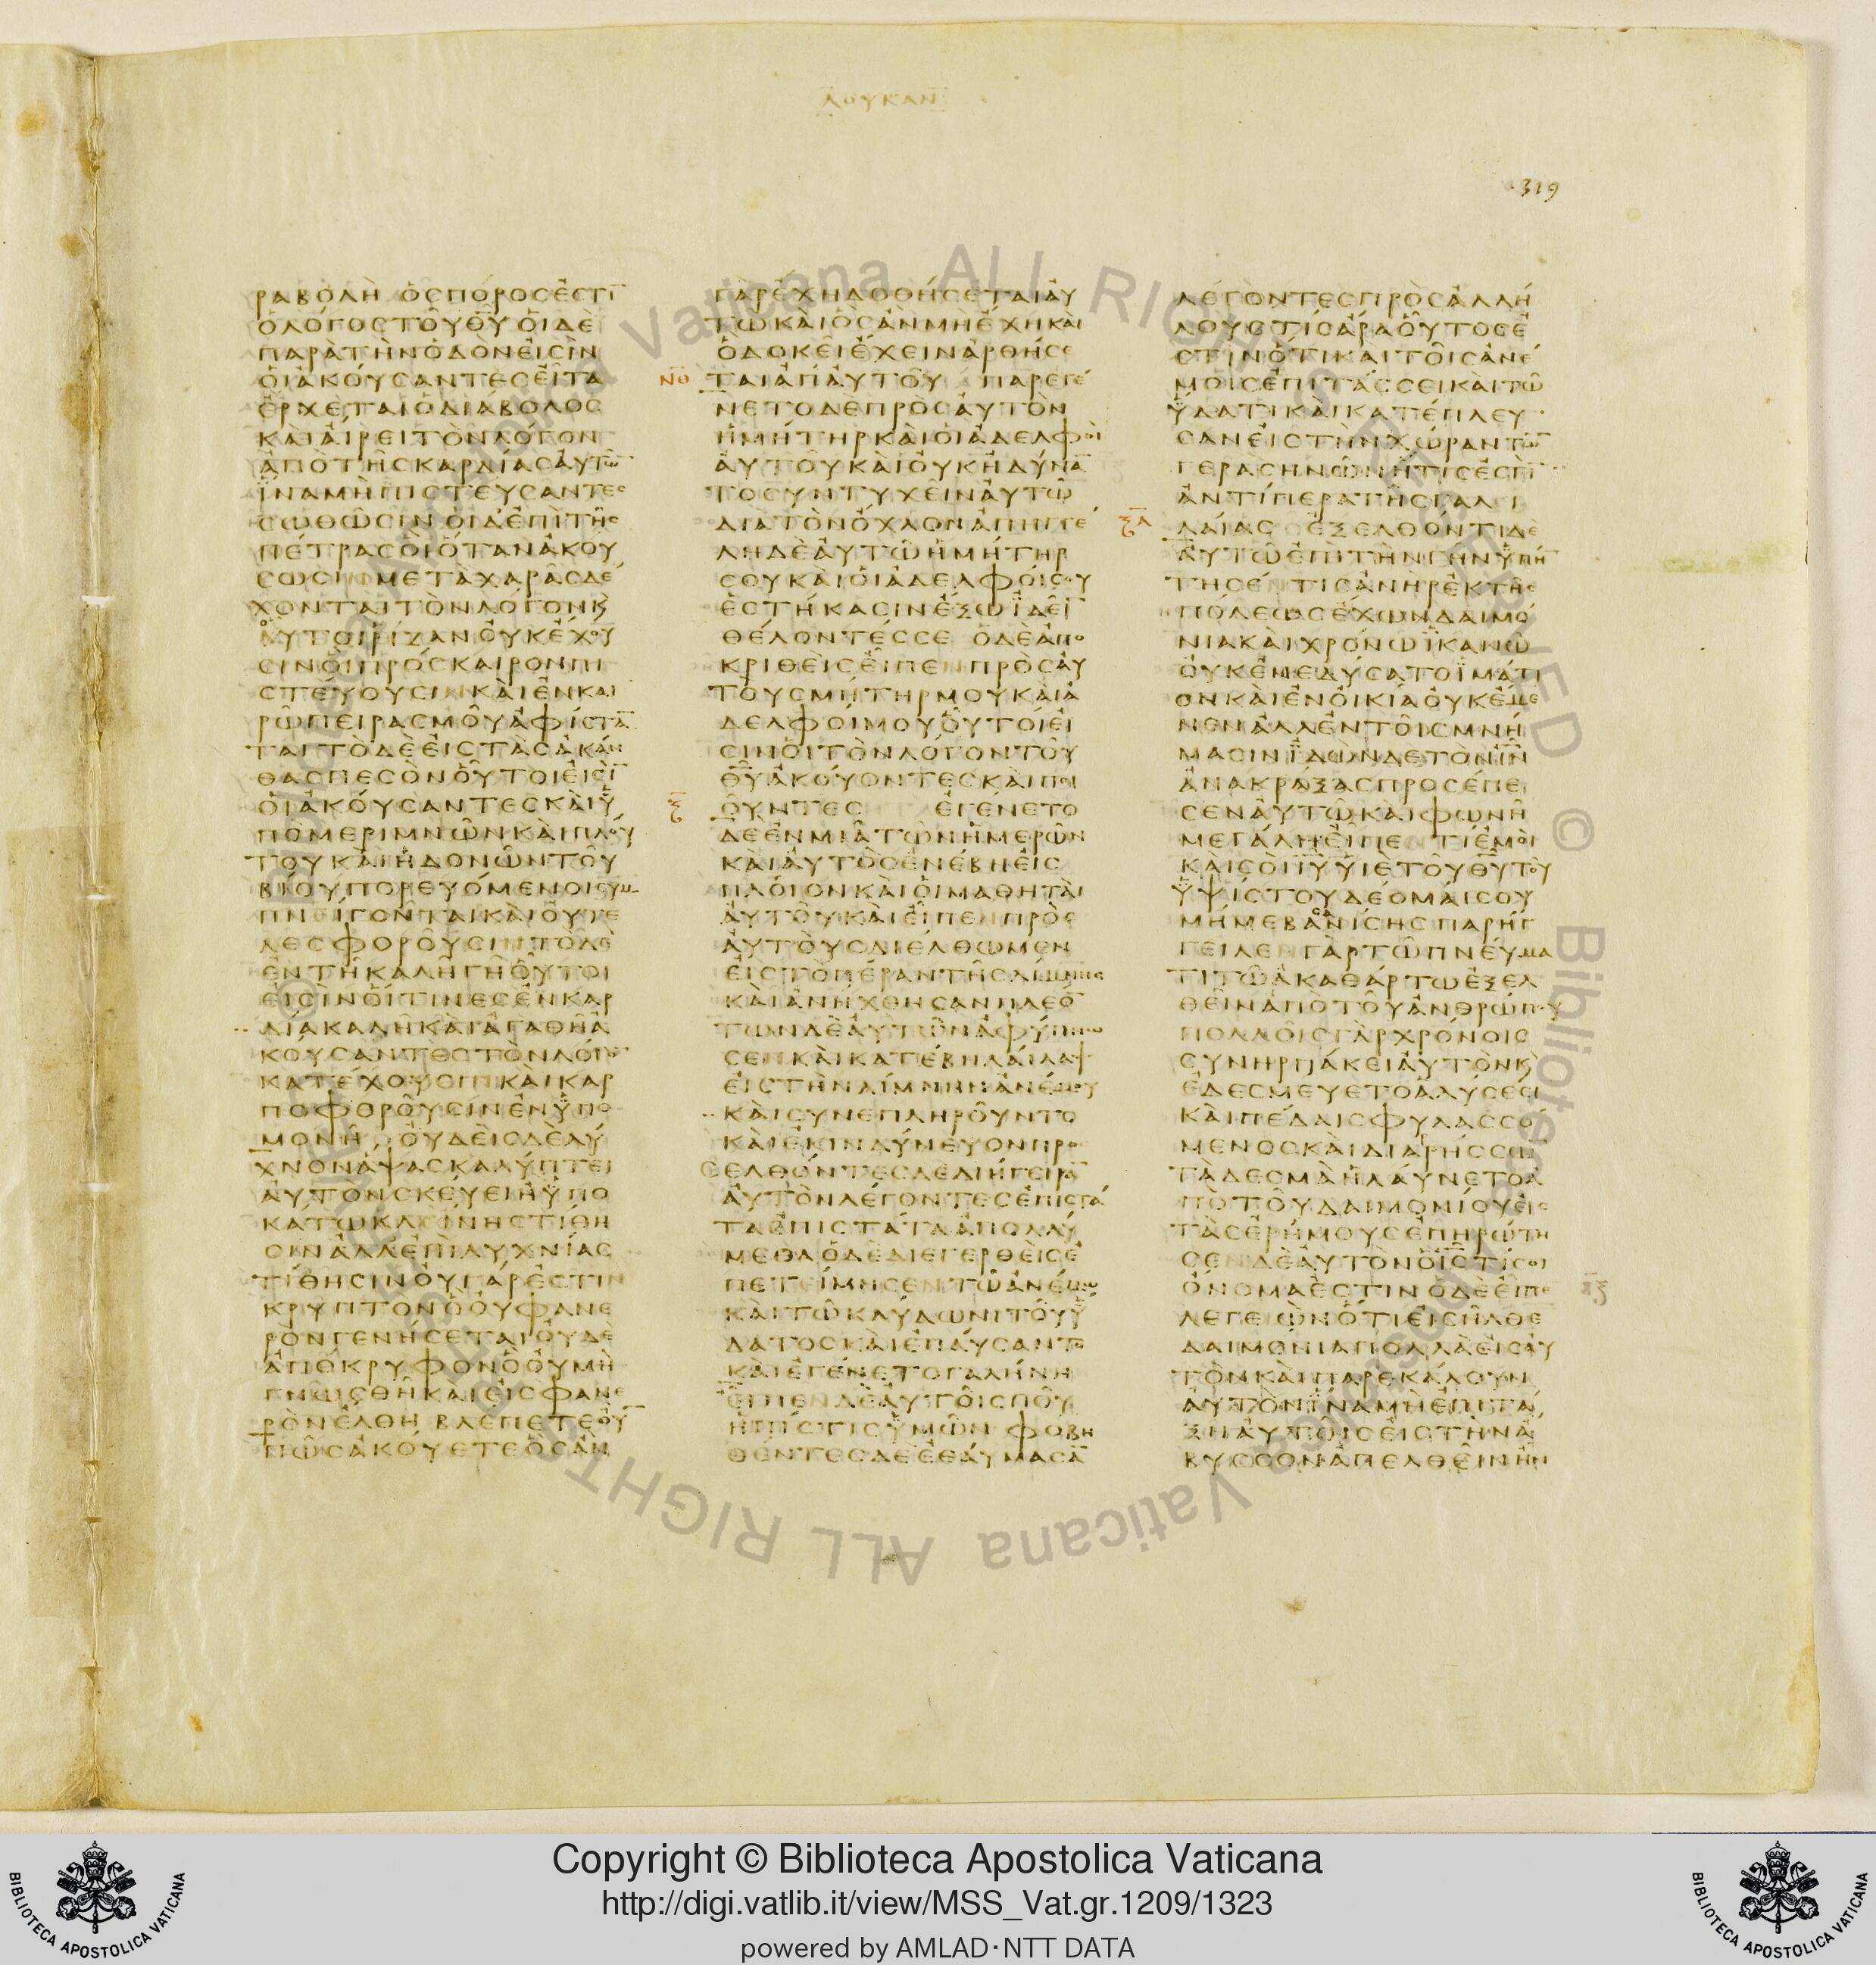 ΛΟΥΚΑΝ
319
ΡΑΒΟΛΗ ΟΣΠΟΡΟΣΕΣΤΙ̅
ΟΛΟΓΟΣΤΟΥΘ̅Υ̅ΟΙΔΕ
ΠΑΡΑΤΗΝΟΔΟΝΕΙΣΙΝ
ΟΙΑΚΟΥΣΑΝΤΕΣΕΙΤΑ
ΕΡΧΕΤΑΙΟΔΙΑΒΟΛΟΣ
ΚΑΙΑΙΡΕΙΤΟΝΛΟΓΟΝ
ΑΠΟΤΗΣΚΑΡΔΙΑΣΑΥΤΩ̅
ΙΝΑΜΗΠΙΣΤΕΥΣΑΝΤΕΣ
ΣΩΘΩΣΙΝΟΙΔΕΠΙΤΗΣ
ΠΕΤΡΑΣΟΙΟΤΑΝΑΚΟΥ
ΣΩΣΙΝΜΕΤΑΧΑΡΑΣΔΕ
ΧΟΝΤΑΙΤΟΝΛΟΓΟΝΚ
ΑΥΤΟΙΡΙΖΑΝΟΥΚΕΧΟΥ
ΣΙΝΟΙΠΡΟΣΚΑΙΡΟΝΠΙ
ΣΤΕΥΟΥΣΙΝΚΑΙΕΝΚΑΙ
ΡΩΠΕΙΡΑΣΜΟΥΑΦΙΣΤΑ̅
ΤΑΙΤΟΔΕΕΙΣΤΑΣΑΚΑΝ
ΘΑΣΠΕΣΟΝΟΥΤΟΙΕΙΣΙ̅
ΟΙΑΚΟΥΣΑΝΤΕΣΚΑΙΥ
ΠΟΜΕΡΙΜΝΩΝΚΑΙΠΛΟΥ
ΤΟΥΚΑΙΗΔΟΝΩΝΤΟΥ
ΒΙΟΥΠΟΡΕΥΟΜΕΝΟΙΣΥΜ
ΠΝΕΙΓΟΝΤΑΙΚΑΙΟΥΤΕ
ΛΕΣΦΟΡΟΥΣΙΝΤΟΔΕ
ΕΝΤΗΚΑΛΗΓΗΟΥΤΟΙ
ΕΙΣΙΝΟΙΤΙΝΕΣΕΝΚΑΡ
ΔΙΑΚΑΛΗΚΑΙΑΓΑΘΗΑ
ΚΟΥΣΑΝΤΕΣΤΟΝΛΟΓΟ̅
ΚΑΤΕΧΟΥΣΙΝΚΑΙΚΑΡ
ΠΟΦΟΡΟΥΣΙΝΕΝΥΠΟ
ΜΟΝΗ ΟΥΔΕΙΣΔΕΛΥ
ΧΝΟΝΑΨΑΣΚΑΛΥΠΤΕΙ
ΑΥΤΟΝΣΚΕΥΕΙΗΥΠΟ
ΚΑΤΩΚΛΕΙΝΗΣΤΙΘΗ
ΣΙΝΑΛΛΕΠΙΛΥΧΝΙΑΣ
ΤΙΘΗΣΙΝΟΥΓΑΡΕΣΤΙΝ
ΚΡΥΠΤΟΝΟΟΥΦΑΝΕ
ΡΟΝΓΕΝΗΣΕΤΑΙΟΥΔΕ
ΑΠΟΚΡΥΦΟΝΟΟΥΜΗ
ΓΝΩΣΘΗΚΑΙΕΙΣΦΑΝΕ
ΡΟΝΕΛΘΗ ΒΛΕΠΕΤΕΟΥ̅
ΠΩΣΑΚΟΥΕΤΕΟΣΑΝ
ΓΑΡΕΧΗΔΟΘΗΣΕΤΑΙΑΥ
ΤΩΚΑΙΟΣΑΝΜΗΕΧΗΚΑΙ
ΟΔΟΚΕΙΕΧΕΙΝΑΡΘΗΣΕ
ΝΘ ΤΑΙΑΠΑΥΤΟΥ ΠΑΡΕΓΕ
ΝΕΤΟΔΕΠΡΟΣΑΥΤΟΝ
ΗΜΗΤΗΡΚΑΙΟΙΑΔΕΛΦΟΙ
ΑΥΤΟΥΚΑΙΟΥΚΗΔΥΝΑ̅
ΤΟΣΥΝΤΥΧΕΙΝΑΥΤΩ
ΔΙΑΤΟΝΟΧΛΟΝΑΠΗΓΓΕ
ΛΗΔΕΑΥΤΩΗΜΗΤΗΡ
ΣΟΥΚΑΙΟΙΑΔΕΛΦΟΙΣΟΥ
ΕΣΤΗΚΑΣΙΝΕΞΩΙΔΕΙ̅
ΘΕΛΟΝΤΕΣΣΕ ΟΔΕΑΠΟ
ΚΡΙΘΕΙΣΕΙΠΕΝΠΡΟΣΑΥ
ΤΟΥΣΜΗΤΗΡΜΟΥΚΑΙΑ
ΔΕΛΦΟΙΜΟΥΟΥΤΟΙΕΙ
ΣΙΝΟΙΤΟΝΛΟΓΟΝΤΟΥ
Θ̅Υ̅ΑΚΟΥΟΝΤΕΣΚΑΙΠΟΙ
Ξ ΟΥΝΤΕΣ ΕΓΕΝΕΤΟ
ΔΕΕΝΜΙΑΤΩΝΗΜΕΡΩΝ
ΚΑΙΑΥΤΟΣΕΝΕΒΗΕΙΣ
ΠΛΟΙΟΝΚΑΙΟΙΜΑΘΗΤΑΙ
ΑΥΤΟΥΚΑΙΕΙΠΕΝΠΡΟΣ
ΑΥΤΟΥΣΔΙΕΛΘΩΜΕΝ
ΕΙΣΤΟΠΕΡΑΝΤΗΣΛΙΜΝΗΣ
ΚΑΙΑΝΗΧΘΗΣΑΝΠΛΕΟ̅
ΤΩΝΔΕΑΥΤΩΝΑΦΥΠΝΩ
ΣΕΝΚΑΙΚΑΤΕΒΗΛΑΙΛΑΨ
ΕΙΣΤΗΝΛΙΜΝΗΝΑΝΕΜΟΥ
ΚΑΙΣΥΝΕΠΛΗΡΟΥΝΤΟ
ΚΑΙΕΚΙΝΔΥΝΕΥΟΝΠΡΟ
ΣΕΛΘΟΝΤΕΣΔΕΔΙΗΓΕΙΡΑ̅
ΑΥΤΟΝΛΕΓΟΝΤΕΣΕΠΙΣΤΑ
ΤΑΕΠΙΣΤΑΤΑΑΠΟΛΛΥ
ΜΕΘΑΟΔΕΔΙΕΓΕΡΘΕΙΣΕ
ΠΕΤΕΙΜΗΣΕΝΤΩΑΝΕΜΩ
ΚΑΙΤΩΚΛΥΔΩΝΙΤΟΥΥ
ΔΑΤΟΣΚΑΙΕΠΑΥΣΑΝΤΟ
ΚΑΙΕΓΕΝΕΤΟΓΑΛΗΝΗ
ΕΙΠΕΝΔΕΑΥΤΟΙΣΠΟΥ
ΗΠΙΣΤΙΣΥΜΩΝ ΦΟΒΗ
ΘΕΝΤΕΣΔΕΕΘΑΥΜΑΣΑ̅
ΛΕΓΟΝΤΕΣΠΡΟΣΑΛΛΗ
ΛΟΥΣΤΙΣΑΡΑΟΥΤΟΣΕ
ΣΤΙΝΟΤΙΚΑΙΤΟΙΣΑΝΕ
ΜΟΙΣΕΠΙΤΑΣΣΕΙΚΑΙΤΩ
ΥΔΑΤΙΚΑΙΚΑΤΕΠΛΕΥ
ΣΑΝΕΙΣΤΗΝΧΩΡΑΝΤΩ̅
ΓΕΡΑΣΗΝΩΝΗΤΙΣΕΣΤΙ̅
ΑΝΤΙΠΕΡΑΤΗΣΓΑΛΕΙ
ΞΑ ΛΑΙΑΣ ΕΞΕΛΘΟΝΤΙΔΕ
ΑΥΤΩΕΠΙΤΗΝΓΗΝΥΠΗ̅
ΤΗΣΕΝΤΙΣΑΝΗΡΕΚΤΗΣ
ΠΟΛΕΩΣΕΧΩΝΔΑΙΜΟ
ΝΙΑΚΑΙΧΡΟΝΩΙΚΑΝΩ
ΟΥΚΕΝΕΔΥΣΑΤΟΙΜΑΤΙ
ΟΝΚΑΙΕΝΟΙΚΙΑΟΥΚΕΜΕ
ΝΕΝΑΛΛΕΝΤΟΙΣΜΝΗ
ΜΑΣΙΝΙΔΩΝΔΕΤΟΝΙ̅Ν̅
ΑΝΑΚΡΑΞΑΣΠΡΟΣΕΠΕ
ΣΕΝΑΥΤΩΚΑΙΦΩΝΗ
ΜΕΓΑΛΗΕΙΠΕΝΤΙΕΜΟΙ
ΚΑΙΣΟΙΙ̅Υ̅ΥΙΕΤΟΥΘ̅Υ̅ΤΟΥ
ΥΨΙΣΤΟΥΔΕΟΜΑΙΣΟΥ
ΜΗΜΕΒΑΣΑΝΙΣΗΣΠΑΡΗΓ
ΓΕΙΛΕΝΓΑΡΤΩΠΝΕΥΜΑ
ΤΙΤΩΑΚΑΘΑΡΤΩΕΞΕΛ
ΘΕΙΝΑΠΟΤΟΥΑΝΘΡΩΠΟΥ
ΠΟΛΛΟΙΣΓΑΡΧΡΟΝΟΙΣ
ΣΥΝΗΡΠΑΚΕΙΑΥΤΟΝΚ
ΕΔΕΣΜΕΥΕΤΟΑΛΥΣΕΣΙ
ΚΑΙΠΕΔΑΙΣΦΥΛΑΣΣΟ
ΜΕΝΟΣΚΑΙΔΙΑΡΗΣΣΩ̅
ΤΑΔΕΣΜΑΗΛΑΥΝΕΤΟΑ
ΠΟΤΟΥΔΑΙΜΟΝΙΟΥΕΙΣ
ΤΑΣΕΡΗΜΟΥΣΕΠΗΡΩΤΗ
ΣΕΝΔΕΑΥΤΟΝΟΙ̅Σ̅ΤΙΣΟΙ
ΟΝΟΜΑΕΣΤΙΝΟΔΕΕΙΠΕ
ΛΕΓΕΙΩΝΟΤΙΕΙΣΗΛΘΕ
ΔΑΙΜΟΝΙΑΠΟΛΛΑΕΙΣΑΥ
ΤΟΝΚΑΙΠΑΡΕΚΑΛΟΥΝ
ΑΥΤΟΝΙΝΑΜΗΕΠΙΤΑ
ΞΗΑΥΤΟΙΣΕΙΣΤΗΝΑ
ΒΥΣΣΟΝΑΠΕΛΘΕΙΝΗΝ
Copyright © Biblioteca Apostolica Vaticana
http://digi.vatlib.it/view/MSS_Vat.gr.1209/1323
powered by AMLAD·NTT DATA
BIBLIOTECA APOSTOLICA VATICANA
BIBLIOTECA APOSTOLICA VATICANA